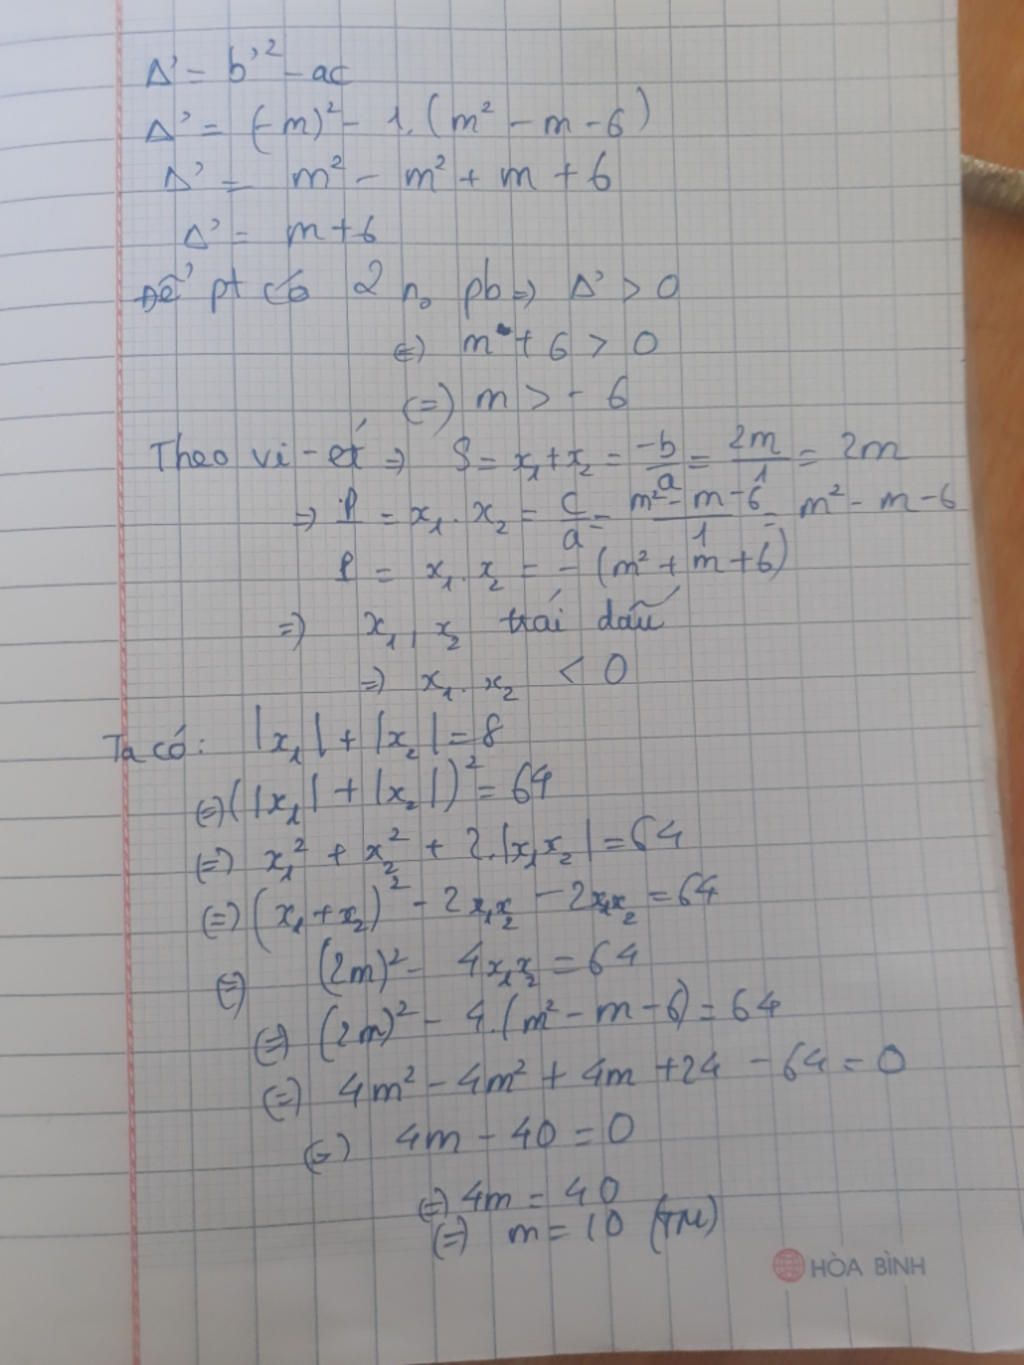 Δ' = b'² - ac
Δ' = (-m)² - 1.(m² - m - 6)
Δ' = m² - m² + m + 6
Δ' = m + 6
Để pt có 2 no pb => Δ' > 0
(=) m + 6 > 0
(=) m > - 6
Theo vi-ét => S = x₁ + x₂ = -b/a = 2m/1 = 2m
=> P = x₁ . x₂ = c/a = m² - m - 6/1 = m² - m - 6
P = x₁ . x₂ = - (m² + m + 6)
=) x₁, x₂ trái dấu
=) x₁ . x₂ < 0
Ta có: |x₁| + |x₂| = 8
(=) (|x₁| + |x₂|)² = 64
(=) x₁² + x₂² + 2.|x₁x₂| = 64
(=) (x₁ + x₂)² - 2x₁x₂ - 2x₁x₂ = 64
(=) (2m)² - 4x₁x₂ = 64
(=) (2m)² - 4.(m² - m - 6) = 64
(=) 4m² - 4m² + 4m + 24 - 64 = 0
(=) 4m - 40 = 0
(=) 4m = 40
(=) m = 10 (TM)
HÒA BÌNH